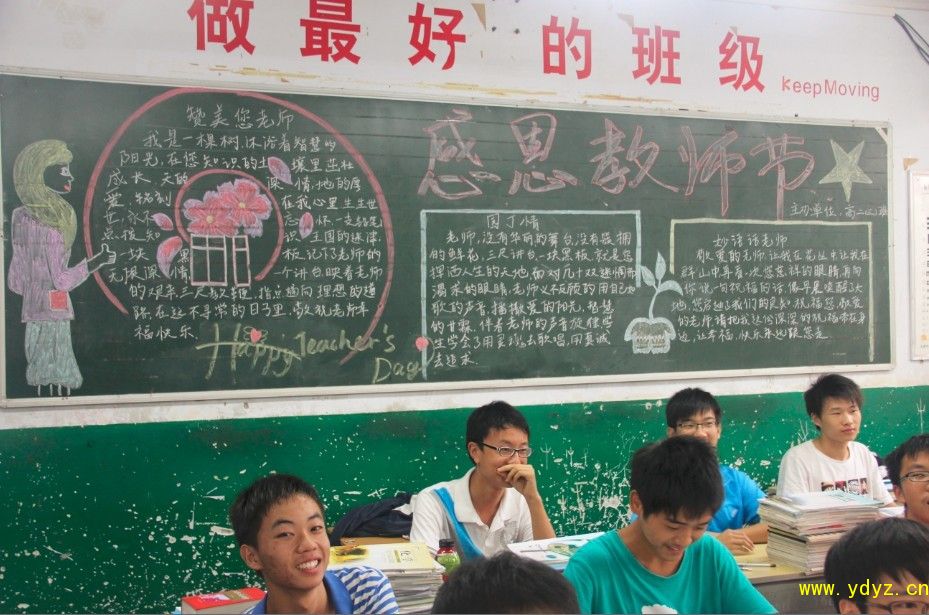 做最好的班级
keepMoving
感恩教师节
主办单位:高二(2)班
赞美您老师
我是一棵树,沐浴着智慧的
阳光,在您知识的土壤里茁壮
成长,天的深情,地的厚
爱,铭刻在我心里生生世
世,永不忘怀一支粉笔
点拨知识王国的迷津,
一块黑板记下老师的
无限深情一个讲台,映着老师
的艰辛,三尺教鞭,指点通向理想的道
路,在这不寻常的日子里,敬祝老师年
福快乐
Happy Teacher's
Day
园丁情
老师,没有华丽的舞台,没有簇拥
的鲜花,三尺讲台,一块黑板就是您
挥洒人生的天地,面对几十双迷惘而
渴求的眼睛,老师义不反顾的用自己
歌的声音,播撒爱的阳光,智慧
的甘霖,伴着老师的声音
学会了用 去歌唱,用真诚
去追求
妙语话老师
敬爱的老师,让我在花丛中,让我在
群山中,寻着一次您慈祥的眼睛,再向
你说一句祝福的话,像早晨唤醒了大
地,您启迪了我们的良知,祝福您,敬爱
的老师,请把我这份深深的祝福带在身
边,让幸福,快乐永远跟您走
www.ydyz.cn